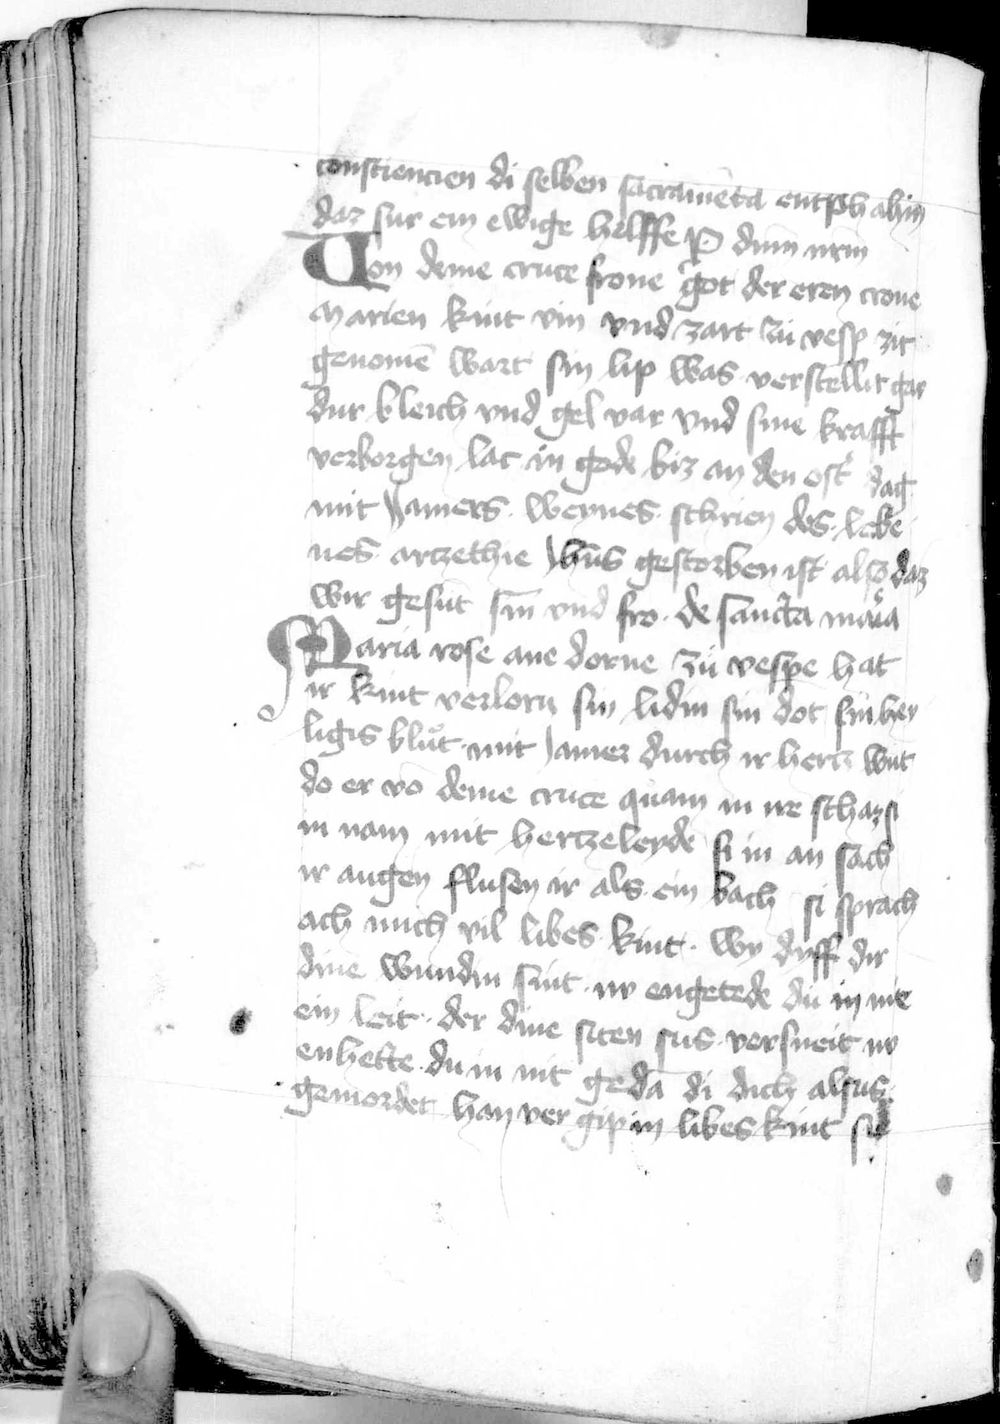 consciencien di selben sacramēta entphahin
daz sur ein ewige hilffe P dnm nrm
Von deme cruce frone got der eren crone
Marien kint vin vnd zart zů vesp zit
genomē wart sin lip was verstellit gar
dur bleich vnd gel var vnd sine krafft
verborgen lac in gode biz an den ost' dag
mit Jamers weynes schrien des lebe
nes arzethie Jhūs gestorben ist also daz
wir gesūt sīn vnd fro de sancta maria
Maria rose ane dorne zů vespe hat
ir kint verlorn sin lidin sin dot sin hey
ligis blůt mit Jamer durch ir hertz wut
do er vō deme cruce quam in ire schaz si
in nam mit hertzeleyde si in an sach
ir augen flusen ir als ein bach si sprach
ach mich vil libes kint wy dyff dir
dine wundin sint nv engetede du in nie
ein leit der dine siten sus versneit nv
enhette du in nit gedā di dich alsus
gemordet han ver gip in libes kint si